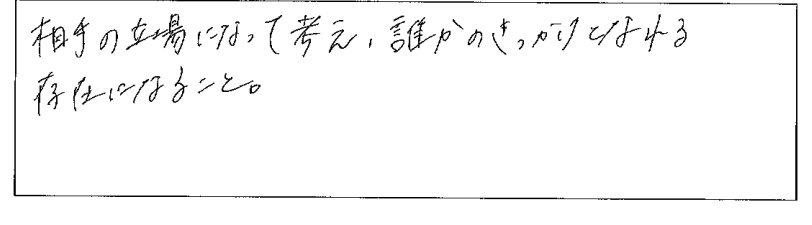 相手の立場になって考え、誰かのきっかけとなれる
存在になること。